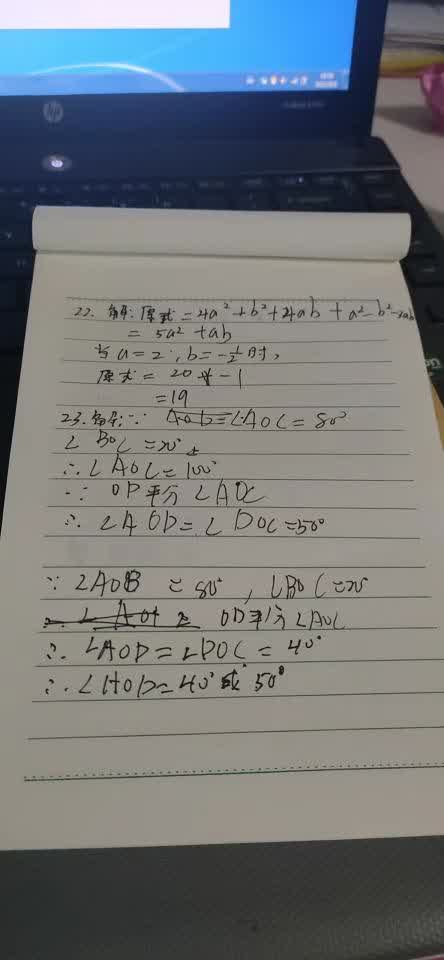 hp
22. 解: 原式 = 4a² + b² + 4ab + a² - b² - 3ab
= 5a² + ab
当 a = 2, b = -1/2 时,
原式 = 20 - 1
= 19
23. 解: ∵ ∠AOC = 80°
∠BOC = 20°
∴ ∠AOC = 100°
∵ OD平分∠AOC
∴ ∠AOD = ∠DOC = 50°
∵ ∠AOB = 80°, ∠BOC = 20°
OD平分∠AOC
∴ ∠AOD = ∠DOC = 40°
∴ ∠AOD = 40° 或 50°